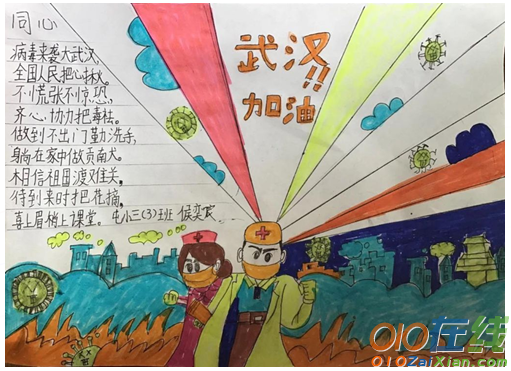 同心
病毒来袭大武汉,
全国人民把心揪。
不慌张不惊恐,
齐心协力把毒杜。
做到不出门勤洗手,
躺在家中做贡献。
相信祖国渡难关,
待到来时把花摘,
喜上眉梢上课堂。屯小三(3)班 侯奕
武汉!!
加油
010在线
010ZaiXian.com